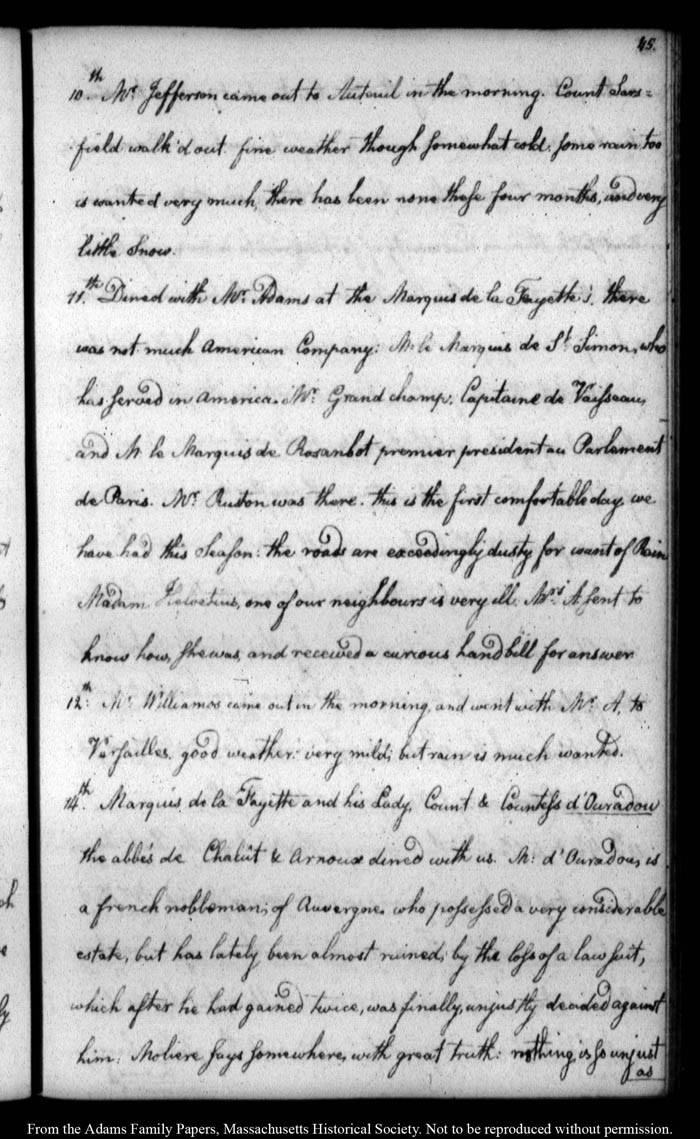 45.
10th. Mr. Jefferson came out to Auteuil in the morning. Count Sars=
field walk'd out. fine weather though somewhat cold. some rain too
is wanted very much, there has been none these four months, and very
little Snow.
11th. Dined with Mr. Adams at the Marquis de la Fayette's. there
was not much American Company: M. le Marquis de St. Simon, who
has served in America. Mr. Grand champ, Capitaine de Vaisseau,
and M. le Marquis de Rosanbot premier president au Parlement
de Paris. Mr. Ruston was there. this is the first comfortable day, we
have had this Season: the roads are exceedingly dusty for want of Rain
Madam Helvetius, one of our neighbours is very ill. Mrs. A. sent to
know how, she was, and received a curious handbill for answer
12th. Mr. Williamos came out in the morning, and went with Mr. A. to
Versailles. good weather: very mild; but rain is much wanted.
14th. Marquis de la Fayette and his Lady, Count & Countess d'Ouradou
the abbés de Chalût & Arnoux dined with us. M: d'Ouradou, is
a french nobleman; of Auvergne, who possessed a very considerable
estate, but has lately been almost ruined, by the loss of a law suit,
which after he had gained twice, was finally, unjustly decided against
him. Moliere says somewhere, with great truth: nothing is so unjust
as
From the Adams Family Papers, Massachusetts Historical Society. Not to be reproduced without permission.